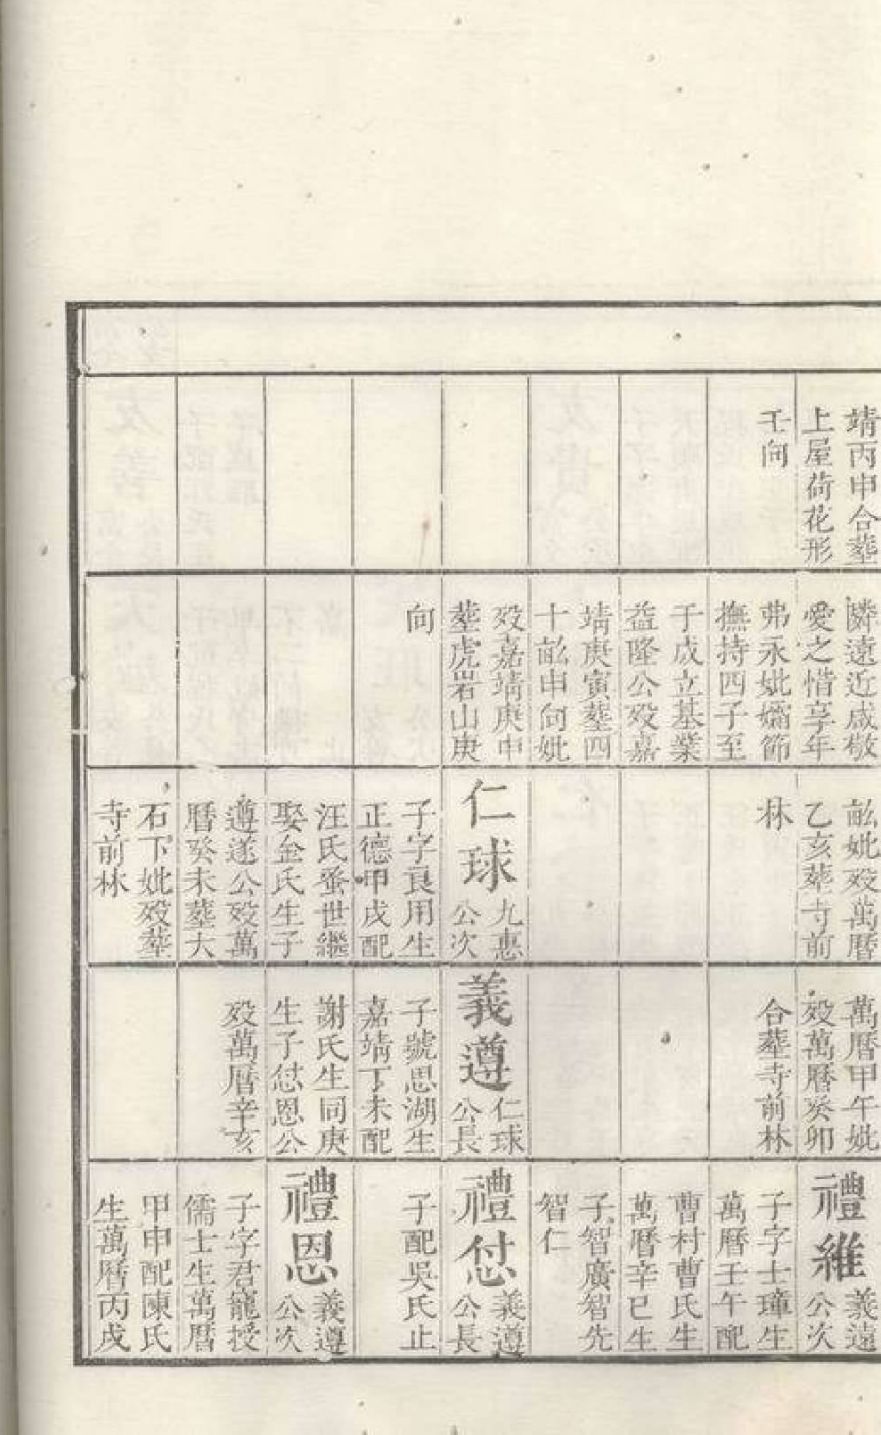 靖丙申合塟
上屋荷花形
壬向
隣遠近咸敬
愛之惜享年
弗永妣孀節
撫持四子至
于成立基業
益隆公殁嘉
靖庚寅塟四
十畝申向妣
殁嘉靖庚申
塟虎岩山庚
向
畝妣殁萬曆
乙亥塟寺前
林
仁球九惠公次
子字良用生
正德甲戌配
汪氏蚤世繼
娶金氏生子
遵遂公殁萬
曆癸未塟大
石下妣殁塟
寺前林
萬曆甲午妣
殁萬曆癸卯
合塟寺前林
義遵仁球公長
子號思湖生
嘉靖丁未配
謝氏生同庚
生子愆恩公
殁萬曆辛亥
禮維義遠公次
子字士璋生
萬曆壬午配
曹村曹氏生
萬曆辛巳生
子智廣智先
智仁
禮愆義遵公長
子配吳氏止
禮恩義遵公次
子字君寵授
儒士生萬曆
甲申配陳氏
生萬曆丙戌